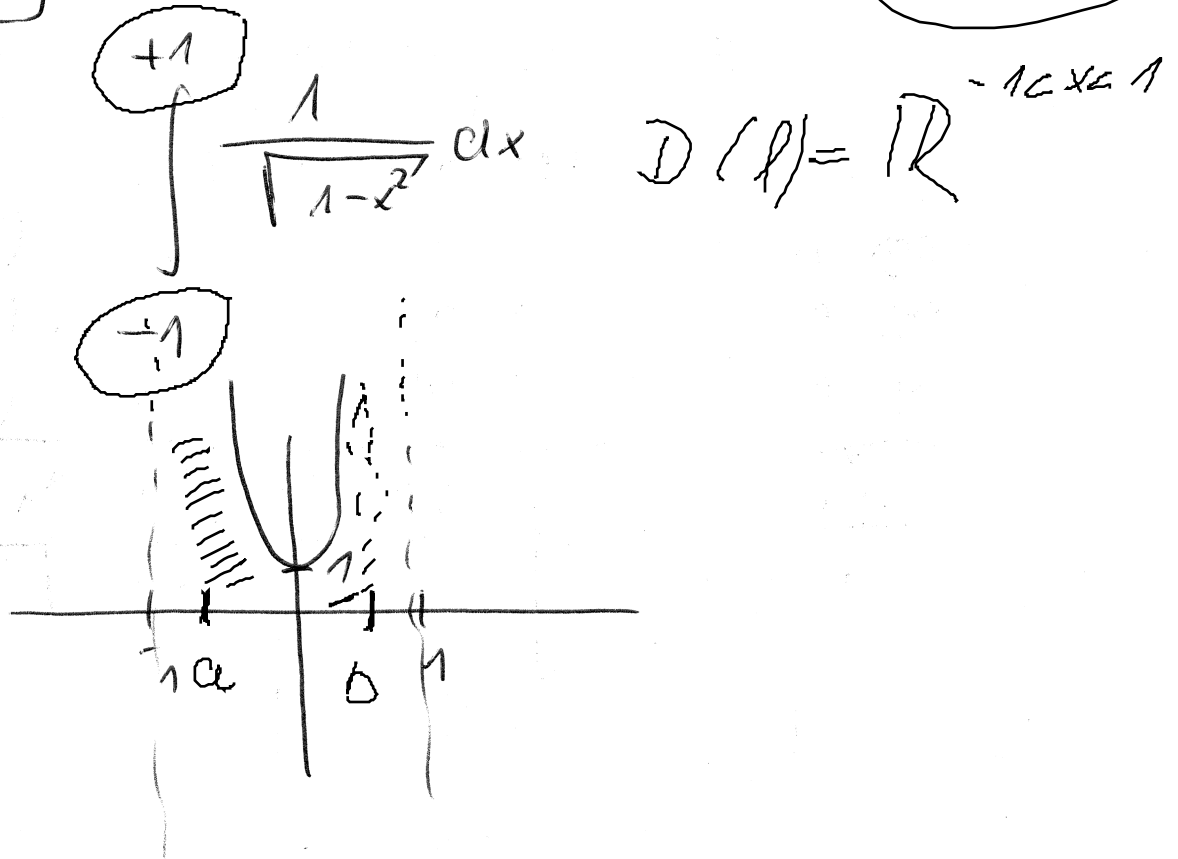 +1
∫ 1/√(1-x²) dx D(f) = ℝ -1<x<1
-1
1
-1 a b 1